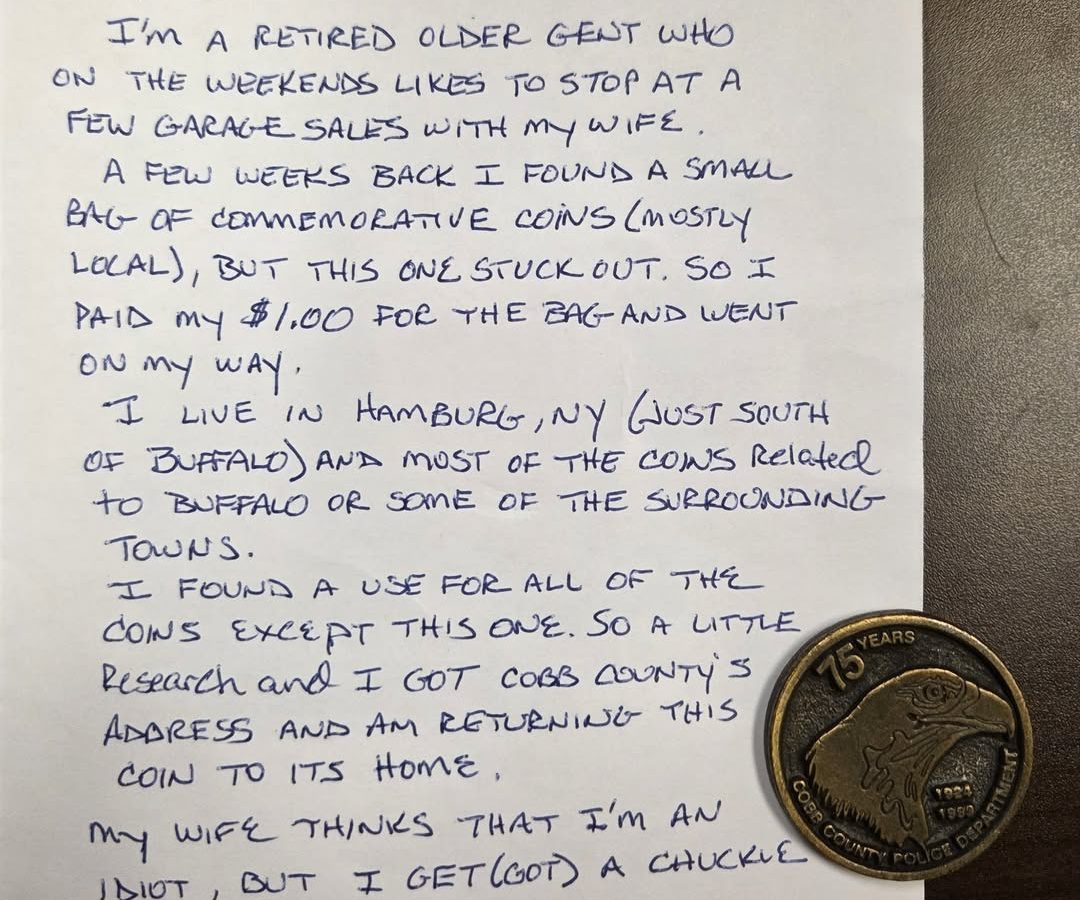 I'm A RETIRED OLDER GENT WHO
ON THE WEEKENDS LIKES TO STOP AT A
FEW GARAGE SALES WITH MY WIFE.
A FEW WEEKS BACK I FOUND A SMALL
BAG OF COMMEMORATIVE COINS (MOSTLY
LOCAL), BUT THIS ONE STUCK OUT. SO I
PAID MY $1.00 FOR THE BAG AND WENT
ON MY WAY.
I LIVE IN HAMBURG, NY (JUST SOUTH
OF BUFFALO) AND MOST OF THE COINS Related
to BUFFALO OR SOME OF THE SURROUNDING
TOWNS.
I FOUND A USE FOR ALL OF THE
COINS EXCEPT THIS ONE. SO A LITTLE
Research and I GOT COBB COUNTY'S
ADDRESS AND AM RETURNING THIS
COIN TO ITS HOME.
MY WIFE THINKS THAT I'M AN
IDIOT, BUT I GET (GOT) A CHUCKLE
75 YEARS
1924
1999
COBB COUNTY POLICE DEPARTMENT